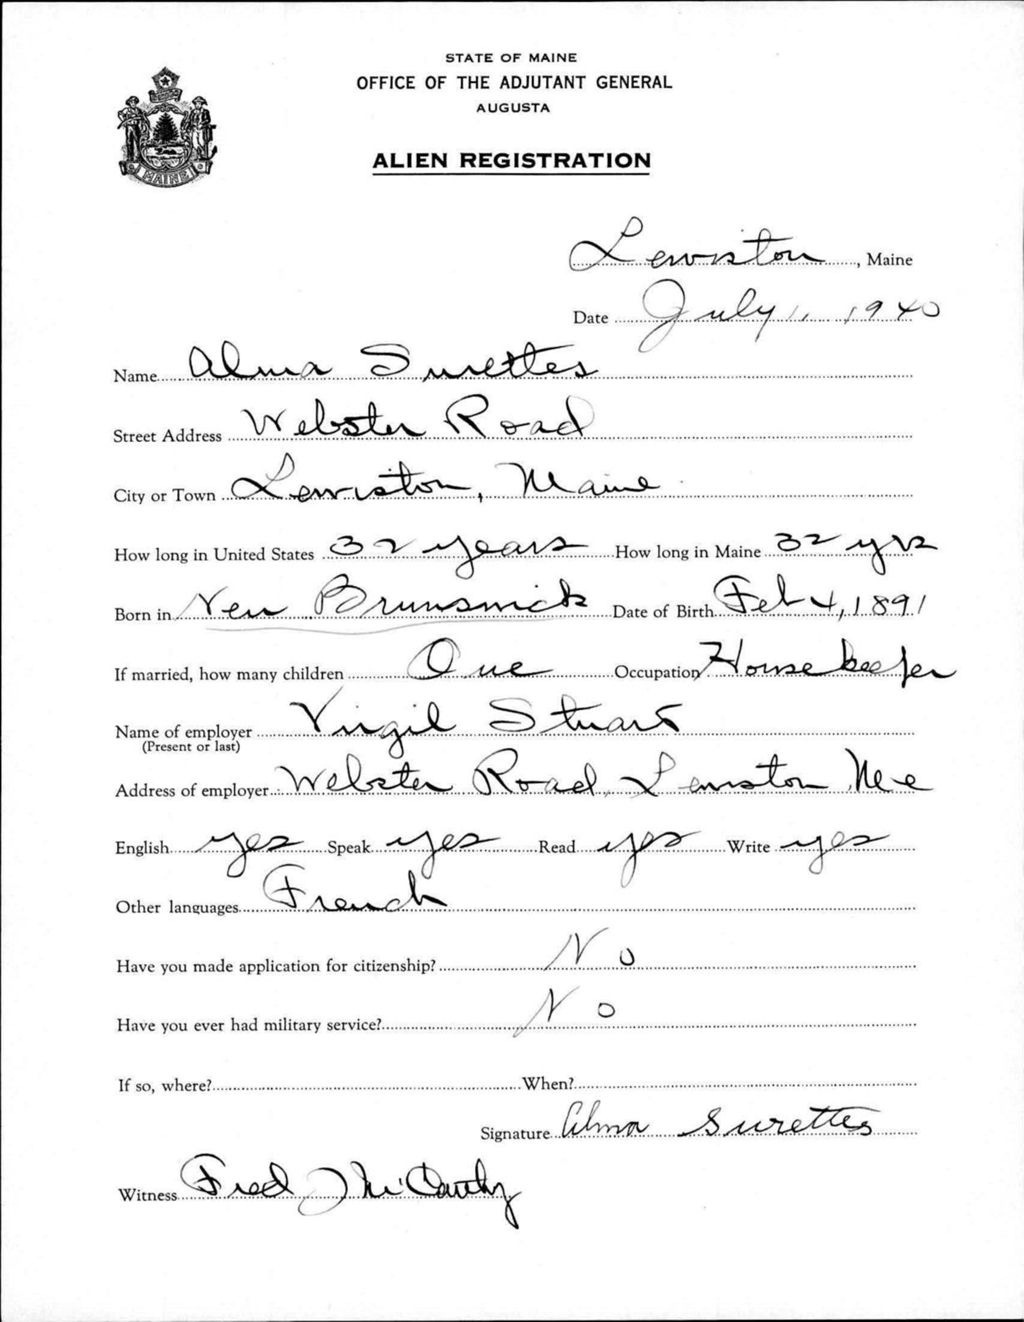 STATE OF MAINE
OFFICE OF THE ADJUTANT GENERAL
AUGUSTA
ALIEN REGISTRATION
MAINE
Lewiston, Maine
Date July 1, 1940
Name Alma Surettes
Street Address Webster Road
City or Town Lewiston, Maine
How long in United States 32 years How long in Maine 32 yrs
Born in New Brunswick Date of Birth Feb 4, 1891
If married, how many children One Occupation Housekeeper
Name of employer Virgil Stuart
(Present or last)
Address of employer Webster Road, Lewiston Me
English yes Speak yes Read yes Write yes
Other languages French
Have you made application for citizenship? No
Have you ever had military service? No
If so, where? When?
Signature Alma Surettes
Witness Fred J McCarthy